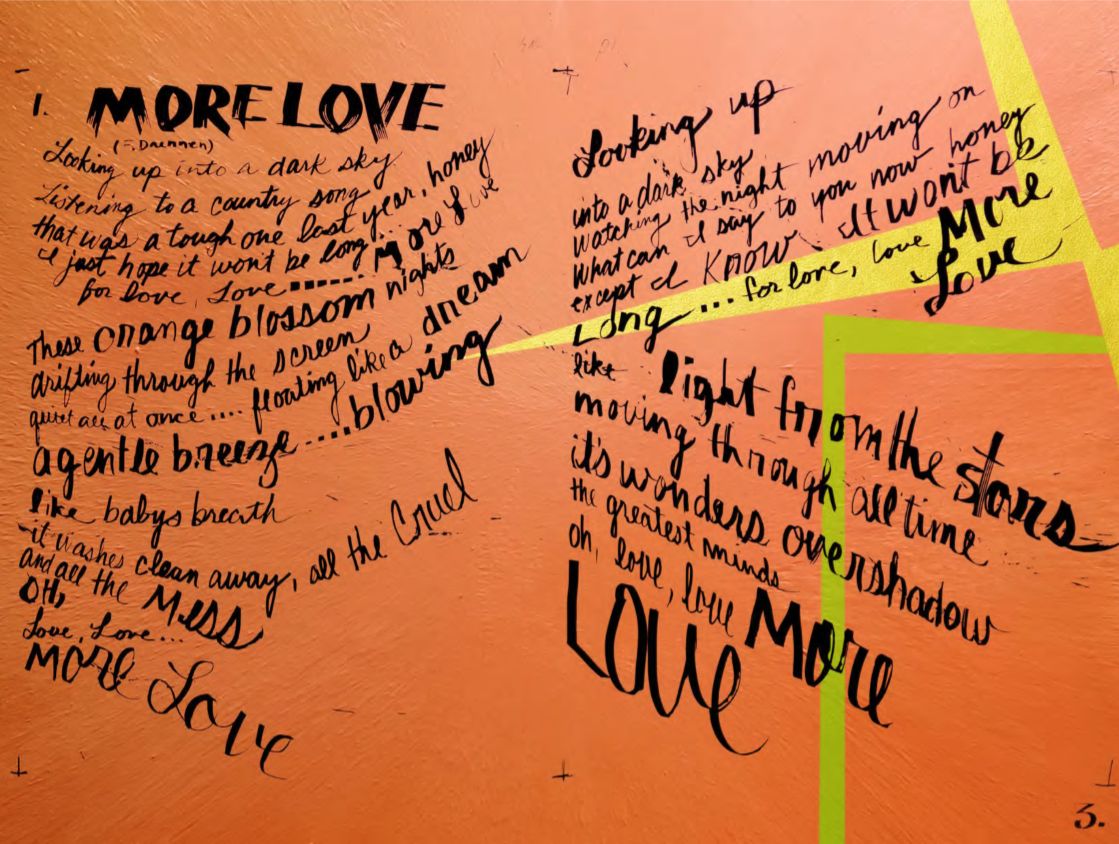 1. MORE LOVE
Looking up into a dark sky
Listening to a country song
that was a tough one last year, honey
I just hope it won't be long... More Love
for love, Love......
These orange blossom nights
drifting through the screen
quiet all at once.... floating like a dream
a gentle breeze....blowing
like babys breath
it washes clean away, all the Cruel
and all the Mess
OH,
Love, Love...
More Love
Looking up
into a dark sky
Watching the night moving on
What can I say to you now honey
except I Know It won't be
Long... for love, love More
Love
like light from the stars
moving through all time
it's wonders overshadow
the greatest minds
oh, love, love More
Love
3.